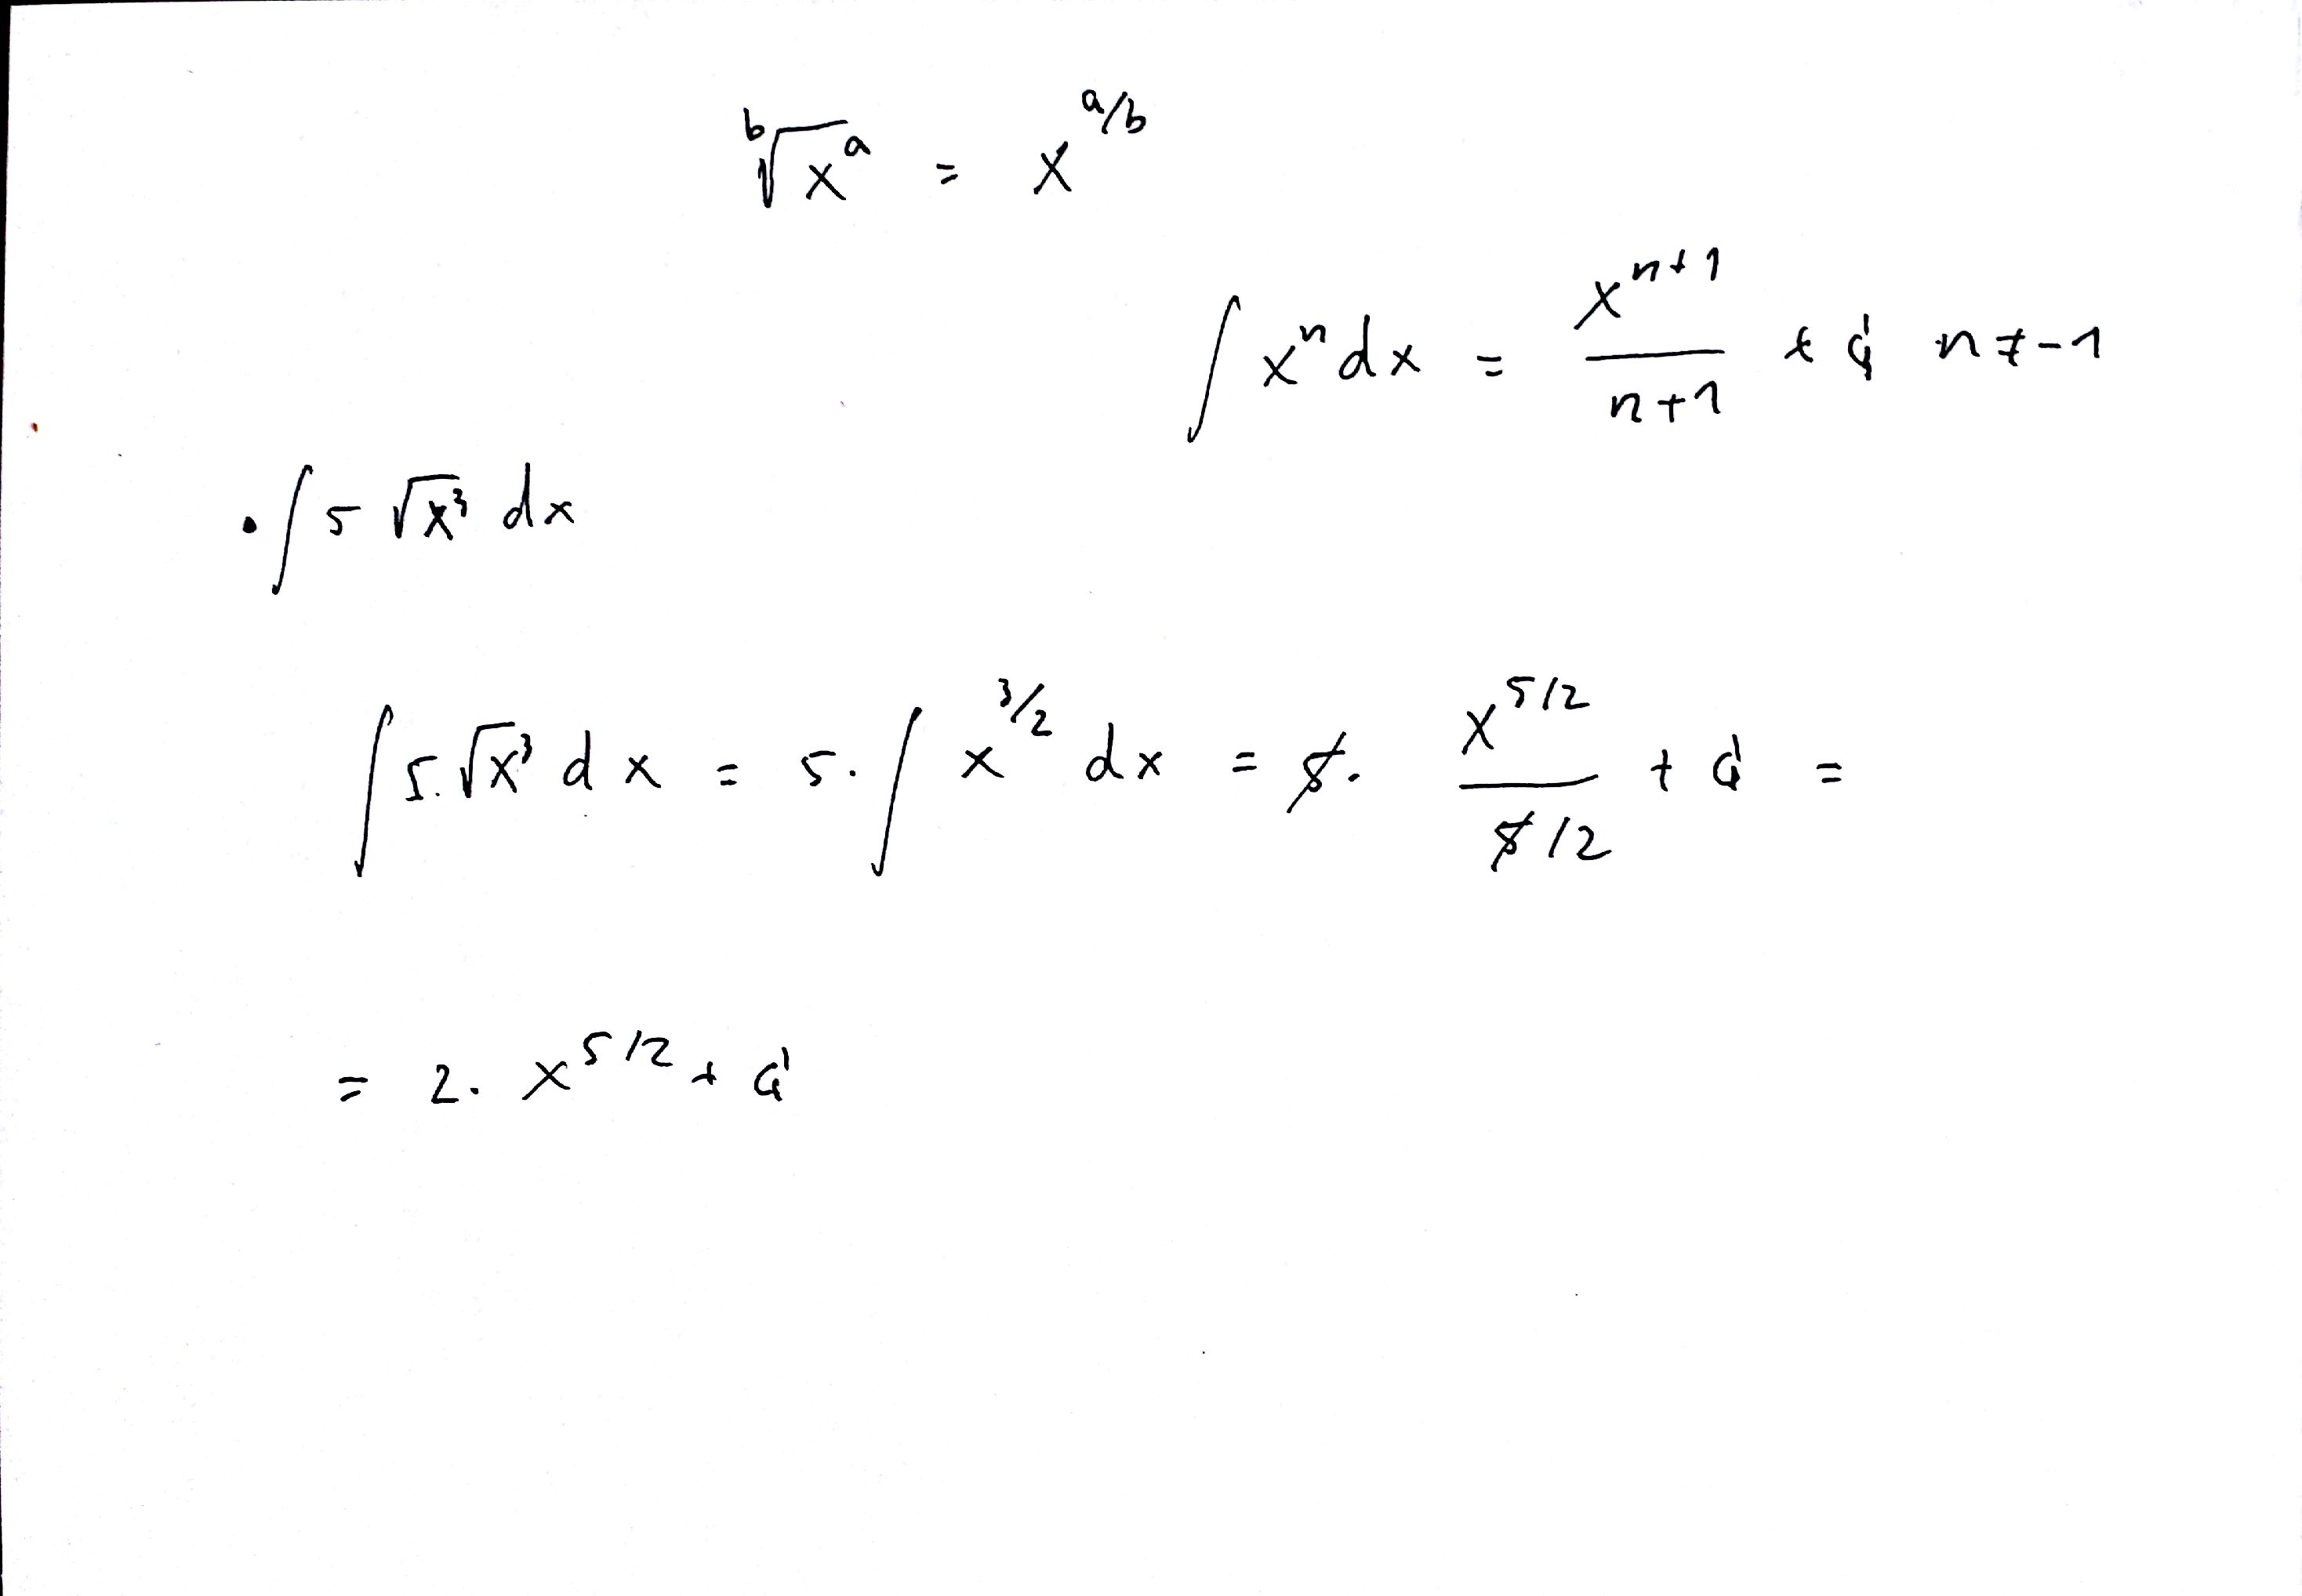 ᵇ√xᵃ = x^(a/b)
∫ xⁿ dx = x^(n+1) / (n+1) + C, n ≠ -1
• ∫ 5 √x³ dx
∫ 5·√x³ dx = 5· ∫ x^(3/2) dx = 5· x^(5/2) / (5/2) + C =
= 2· x^(5/2) + C